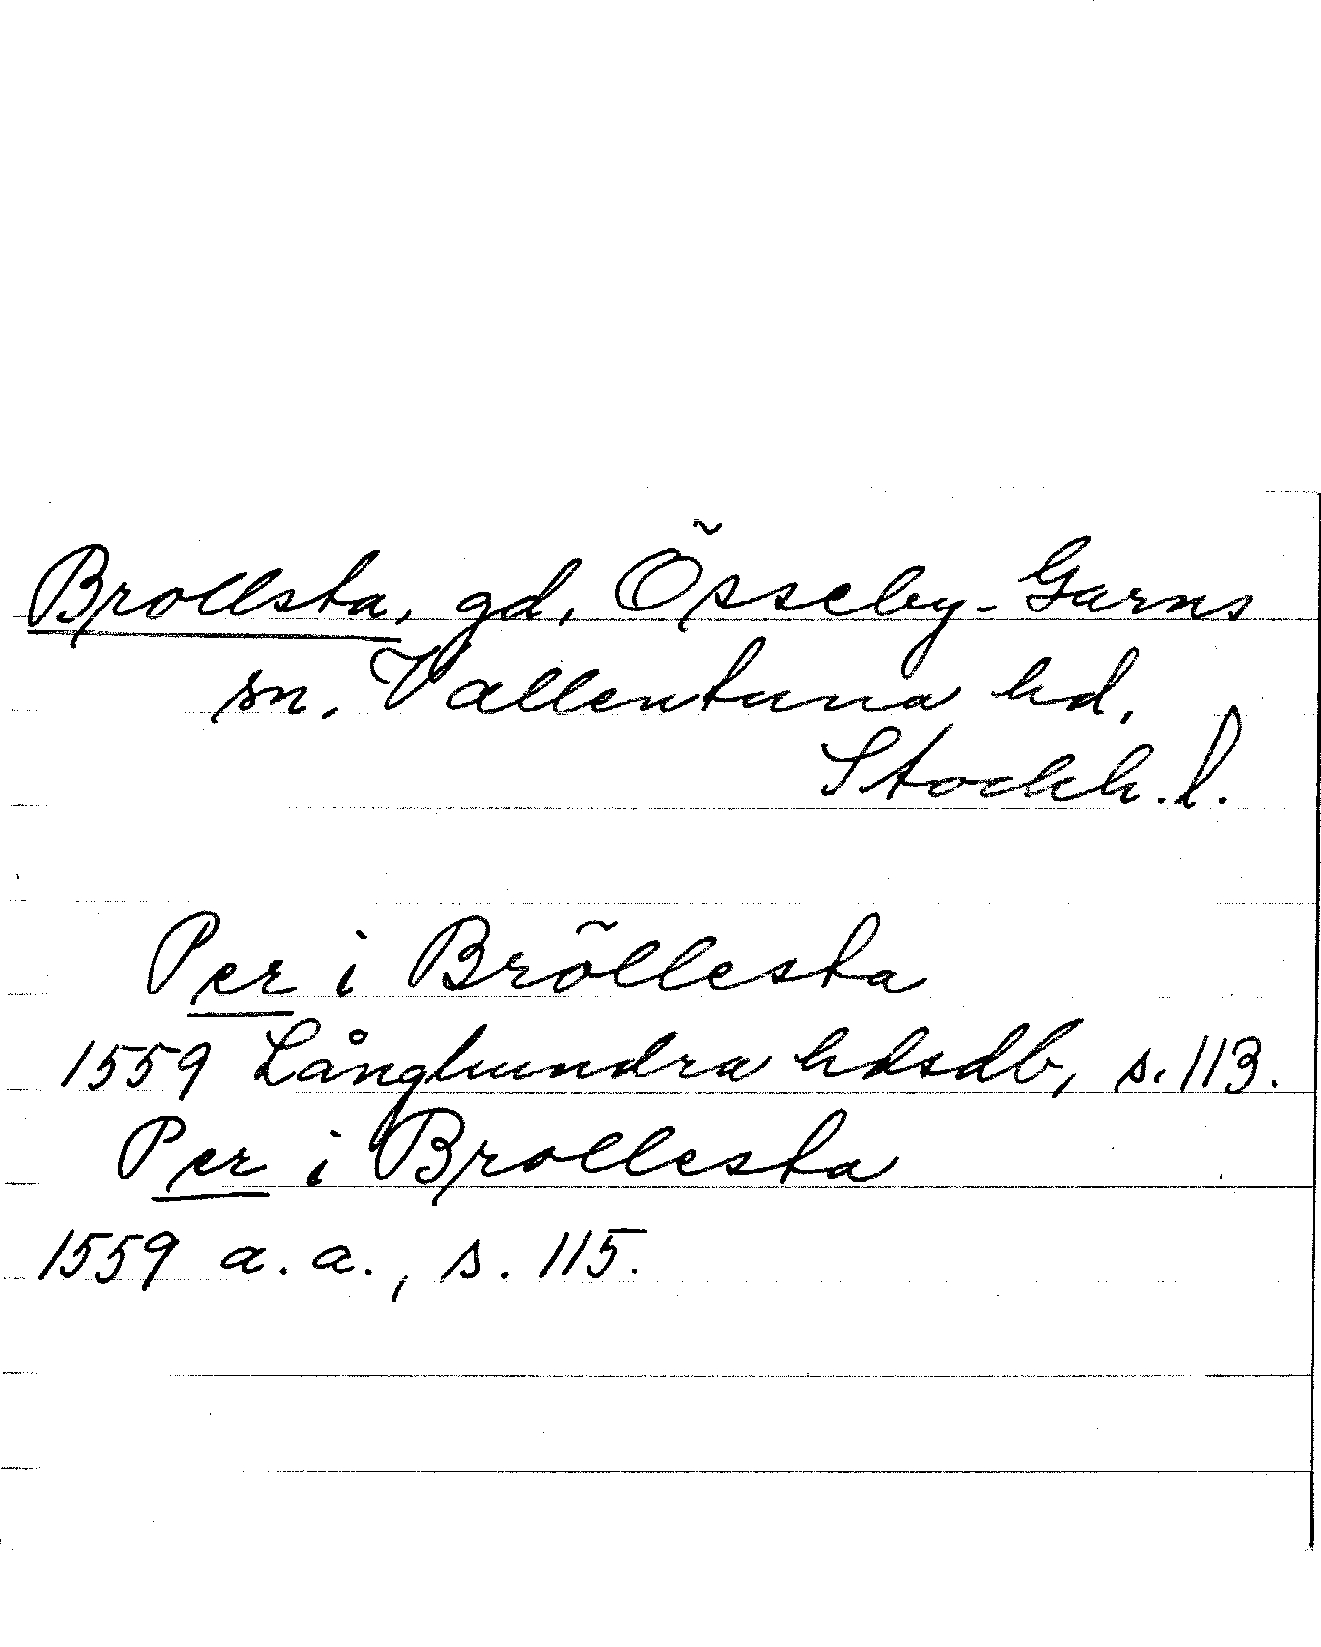 Brollsta, gd, Össeby-Garns
sn. Vallentuna hd.
Stockh. l.
Per i Bröllesta
1559 Långhundra hdsdb, s. 113.
Per i Brollesta
1559 a. a., s. 115.